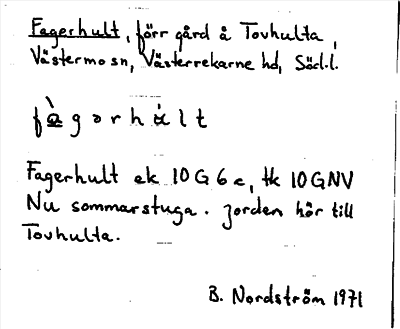 Fagerhult, förr gård å Tovhulta,
Västermo sn, Västerrekarne hd, Södl.
fàgərhúlt
Fagerhult ek 10G6c, tk 10GNV
Nu sommarstuga. Jorden hör till
Tovhulta.
B. Nordström 1971